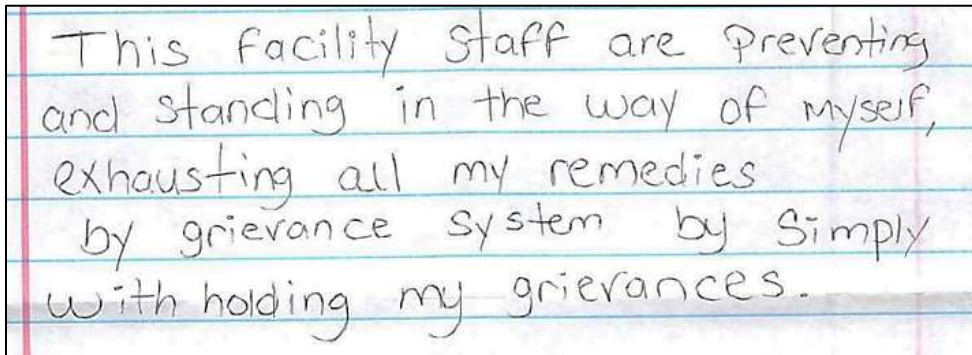 This facility Staff are Preventing
and standing in the way of myself,
exhausting all my remedies
by grievance system by Simply
with holding my grievances.